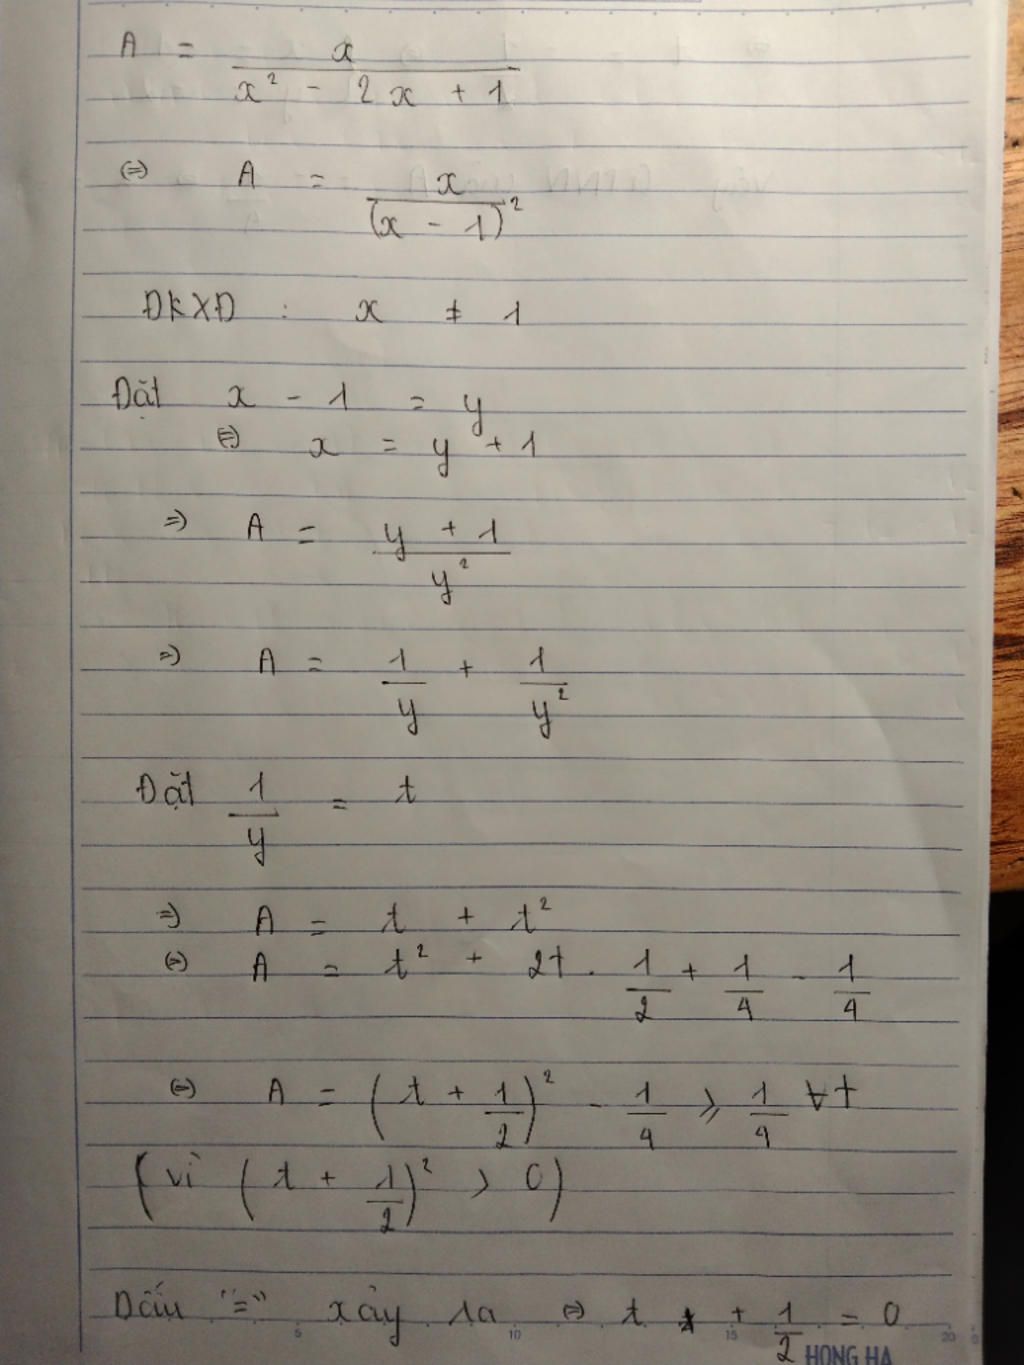 A = x / (x² - 2x + 1)
(=) A = x / (x - 1)²
ĐKXĐ : x ≠ 1
Đặt x - 1 = y
(=) x = y + 1
=) A = (y + 1) / y²
=) A = 1/y + 1/y²
Đặt 1/y = t
=) A = t + t²
(=) A = t² + 2t . 1/2 + 1/4 - 1/4
(=) A = (t + 1/2)² - 1/4 ≥ 1/4 ∀t
(vì (t + 1/2)² > 0)
Dấu "=" xảy ra (=) t + 1/2 = 0
5 10 15 20
HONG HA